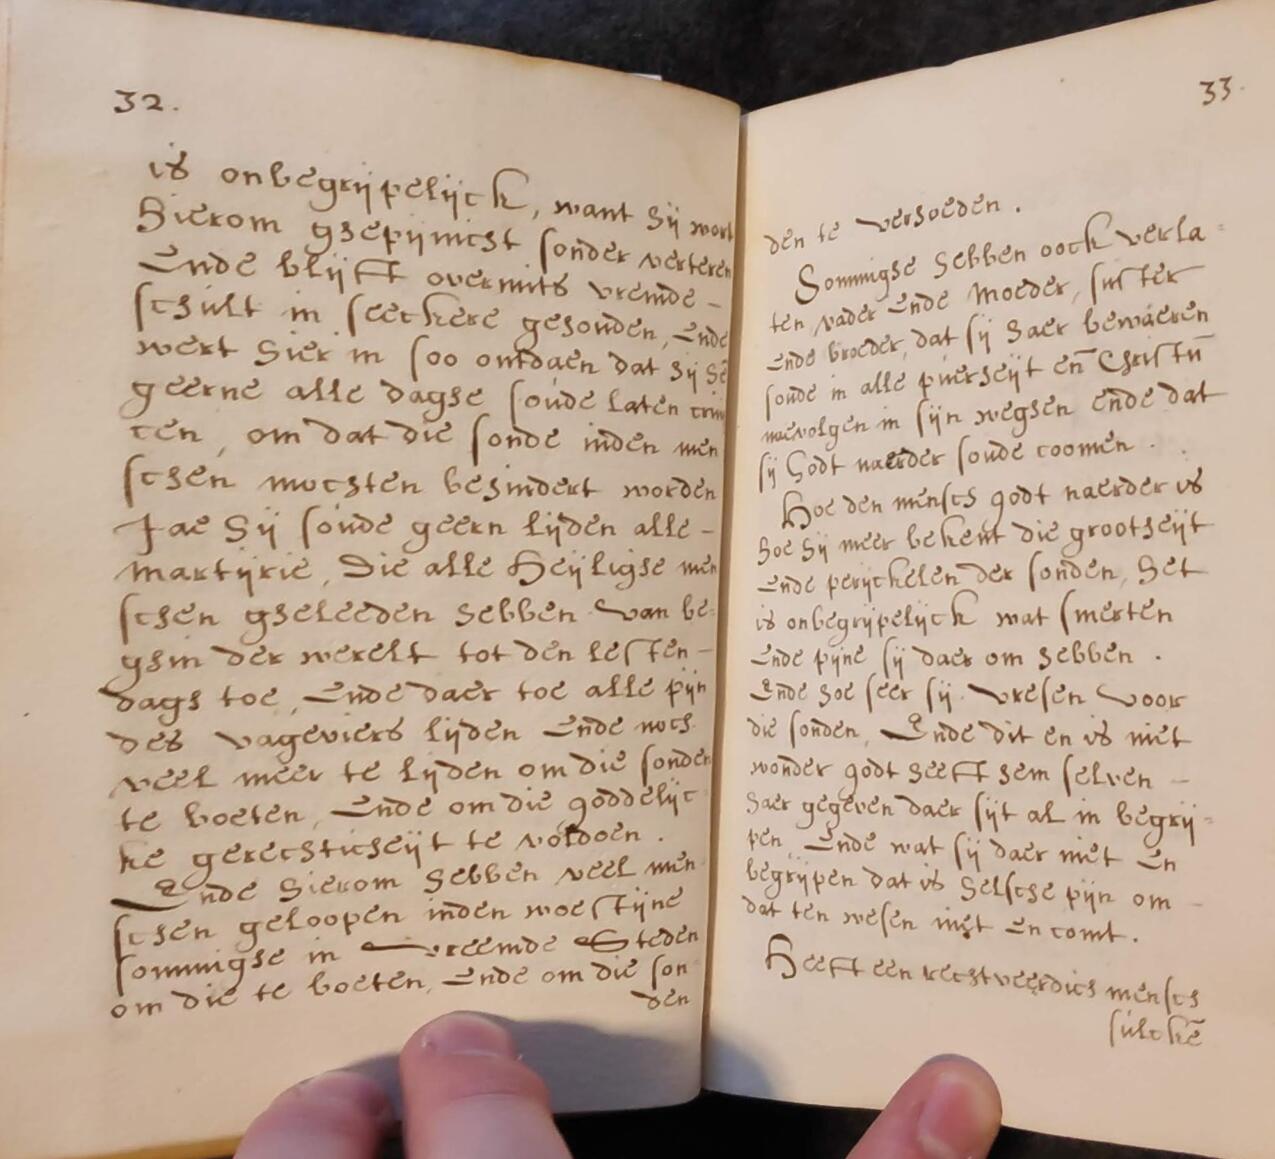 32.
is onbegrijpelijck, want hij wort
hierom ghepijnicht sonder verteren
Ende blijft overmits vremde -
schult in seeckere gehouden, Ende
wert hier in soo ontdaen dat hij hē
geerne alle daghe soude laten
ten, om dat die sonde inden men
schen mochten behindert worden
Jae hij soude geern lijden alle -
martijrie, Die alle heijlighe men
schen gheleeden hebben van be-
ghin der werelt tot den lesten -
dagh toe, Ende daer toe alle pijn
des vageviers lijden Ende noch
veel meer te lijden om die sonden
te boeten, Ende om die goddelijc
ke gerechticheijt te voldoen.
Ende hierom hebben veel men
schen geloopen inden woestijne
sommighe in vreemde Steden
om die te boeten, Ende om die son
den
33.
den te verhoeden.
Sommighe hebben oock verla=
ten vader Ende Moeder, suster
Ende broeder, dat sij haer bewaeren
soude in alle puerheijt eñ Christū
naevolgen in sijn weghen Ende dat
sij Godt naerder soude coomen.
Hoe den mensch godt naerder is
hoe hij meer bekent die grootheijt
Ende perijckelen der sonden, het
is onbegrijpelijck wat smerten
Ende pijne sij daer om hebben.
Ende hoe seer sij vresen voor
die sonden, Ende dit en is niet
wonder godt heeft hem selven -
haer gegeven daer sijt al in begrij=
pen, Ende wat sij daer niet En
begrijpen dat is helsche pijn om -
dat ten wesen niet En comt.
Heeft een rechtveerdich mensch
sulckē